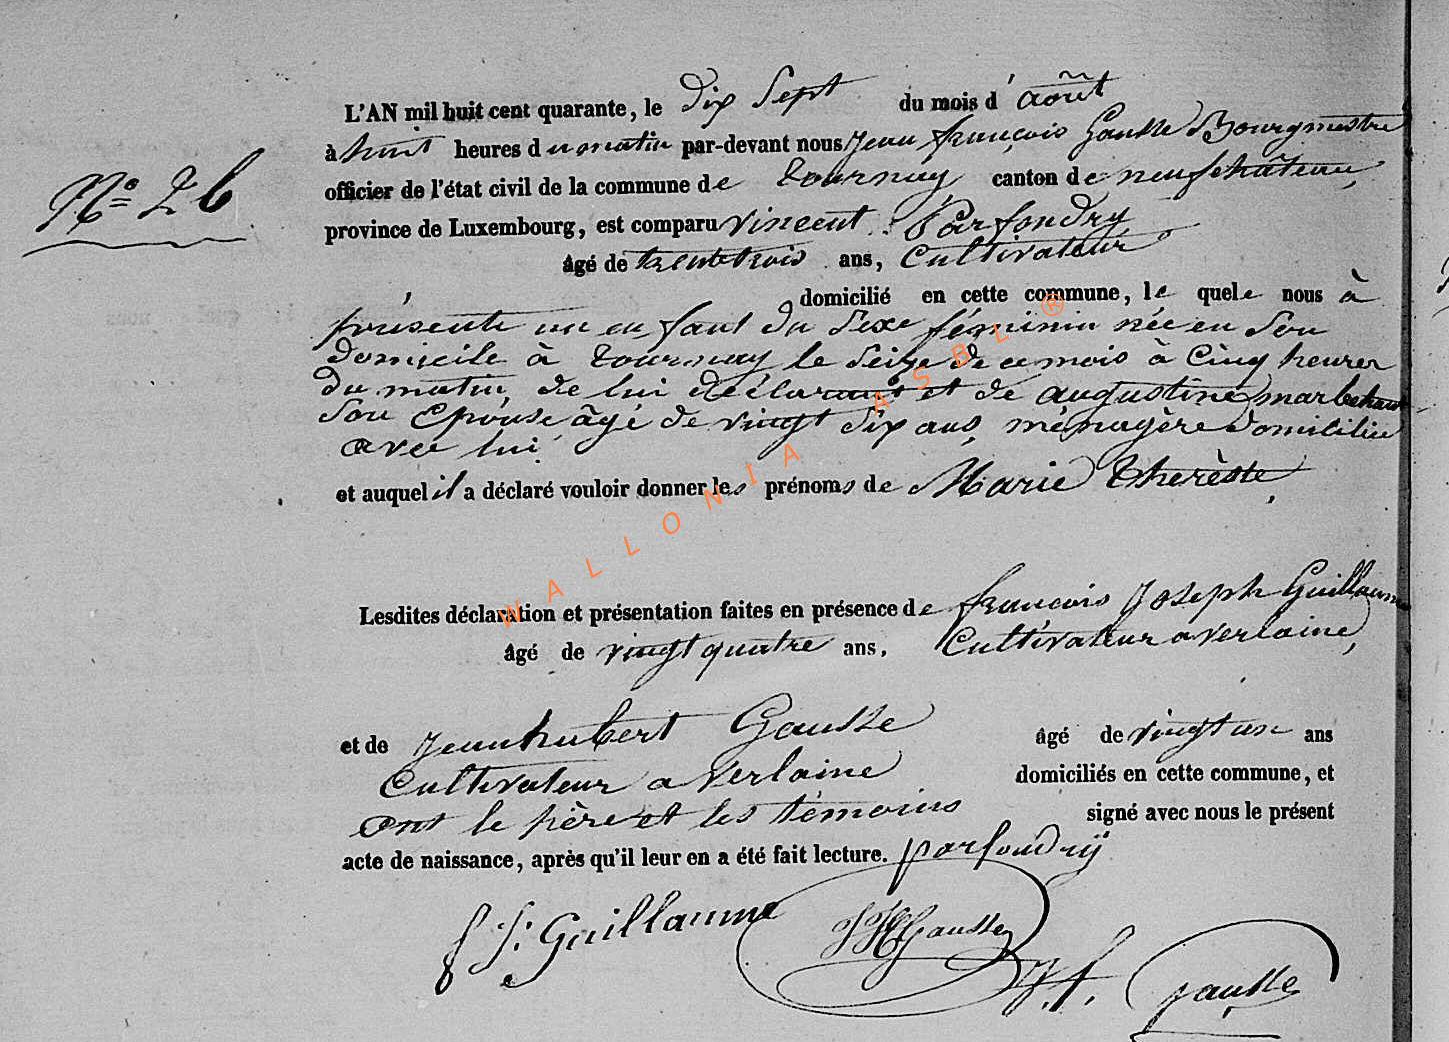 L'AN mil huit cent quarante, le dix Sept du mois d'août
N° 26
à huit heures du matin par-devant nous jean françois Gausse Bourgmestre
officier de l'état civil de la commune de tournay canton de neufchâteau,
province de Luxembourg, est comparu vincent Parfondry
âgé de trentetrois ans, Cultivateur
domicilié en cette commune, le quele nous à
présenté un enfant du Sexe féminin née en Son
domicile à tournay le Seize de ce mois à Cinq heures
du matin, de lui déclarant et de augustine marbehant
Son Epouse âgé de vingt dix ans, ménagère domiciliée
avec lui
et auquel il a déclaré vouloir donner les prénoms de Marie therèsse,
Lesdites déclaration et présentation faites en présence de francois Joseph Guillaume
âgé de vingt quatre ans, Cultivateur a verlaine,
et de jean hubert Gausse âgé de vingt un ans
Cultivateur a verlaine domiciliés en cette commune, et
ont le père et les témoins signé avec nous le présent
acte de naissance, après qu'il leur en a été fait lecture. parfondrÿ
f. J. Guillaume JH Gausse
J. f. Gausse
WALLONIA ASBL ®